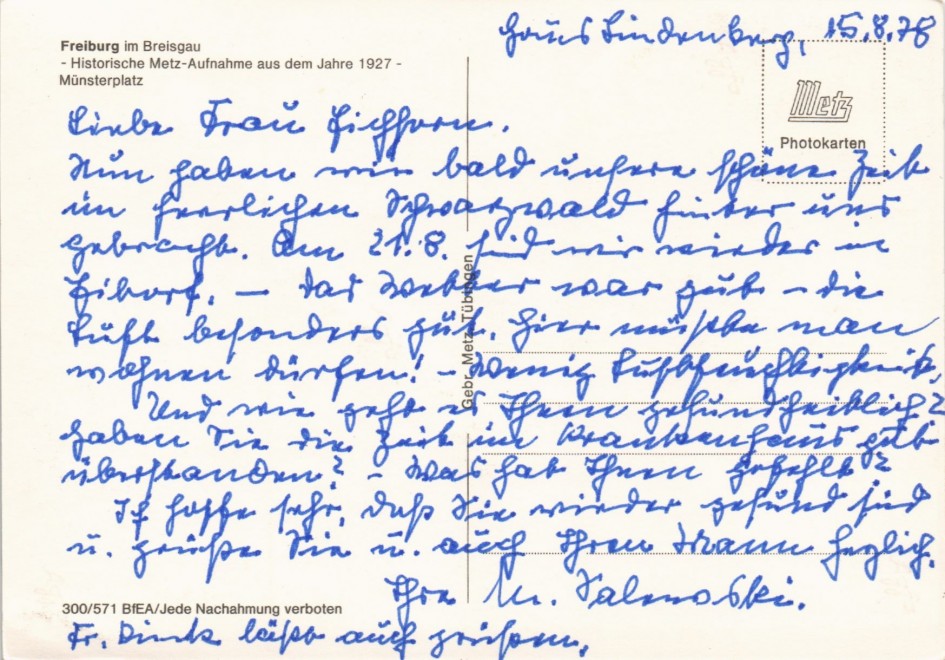 Haus Lindenberg, 15.8.78
Freiburg im Breisgau
- Historische Metz-Aufnahme aus dem Jahre 1927 -
Münsterplatz
Metz
Photokarten
Liebe Frau Eichhorn.
Nun haben wir bald unsere schöne Zeit
im herrlichen Schwarzwald hinter uns
gebracht. Am 21.8. sind wir wieder in
Eitorf. – Das Wetter war gut – die
Luft besonders gut. Hier müßte man
wohnen dürfen! – Wenig Luftfeuchtigkeit.
Und wie geht es Ihnen gesundheitlich?
Haben Sie die Zeit im Krankenhaus gut
überstanden? – Was hat Ihnen gefehlt?
Ich hoffe sehr, daß Sie wieder gesund sind
u. grüße Sie u. auch Ihren Mann herzlich.
Ihre M.
Fr. läßt auch grüßen.
Gebr. Metz, Tübingen
300/571 BfEA/Jede Nachahmung verboten